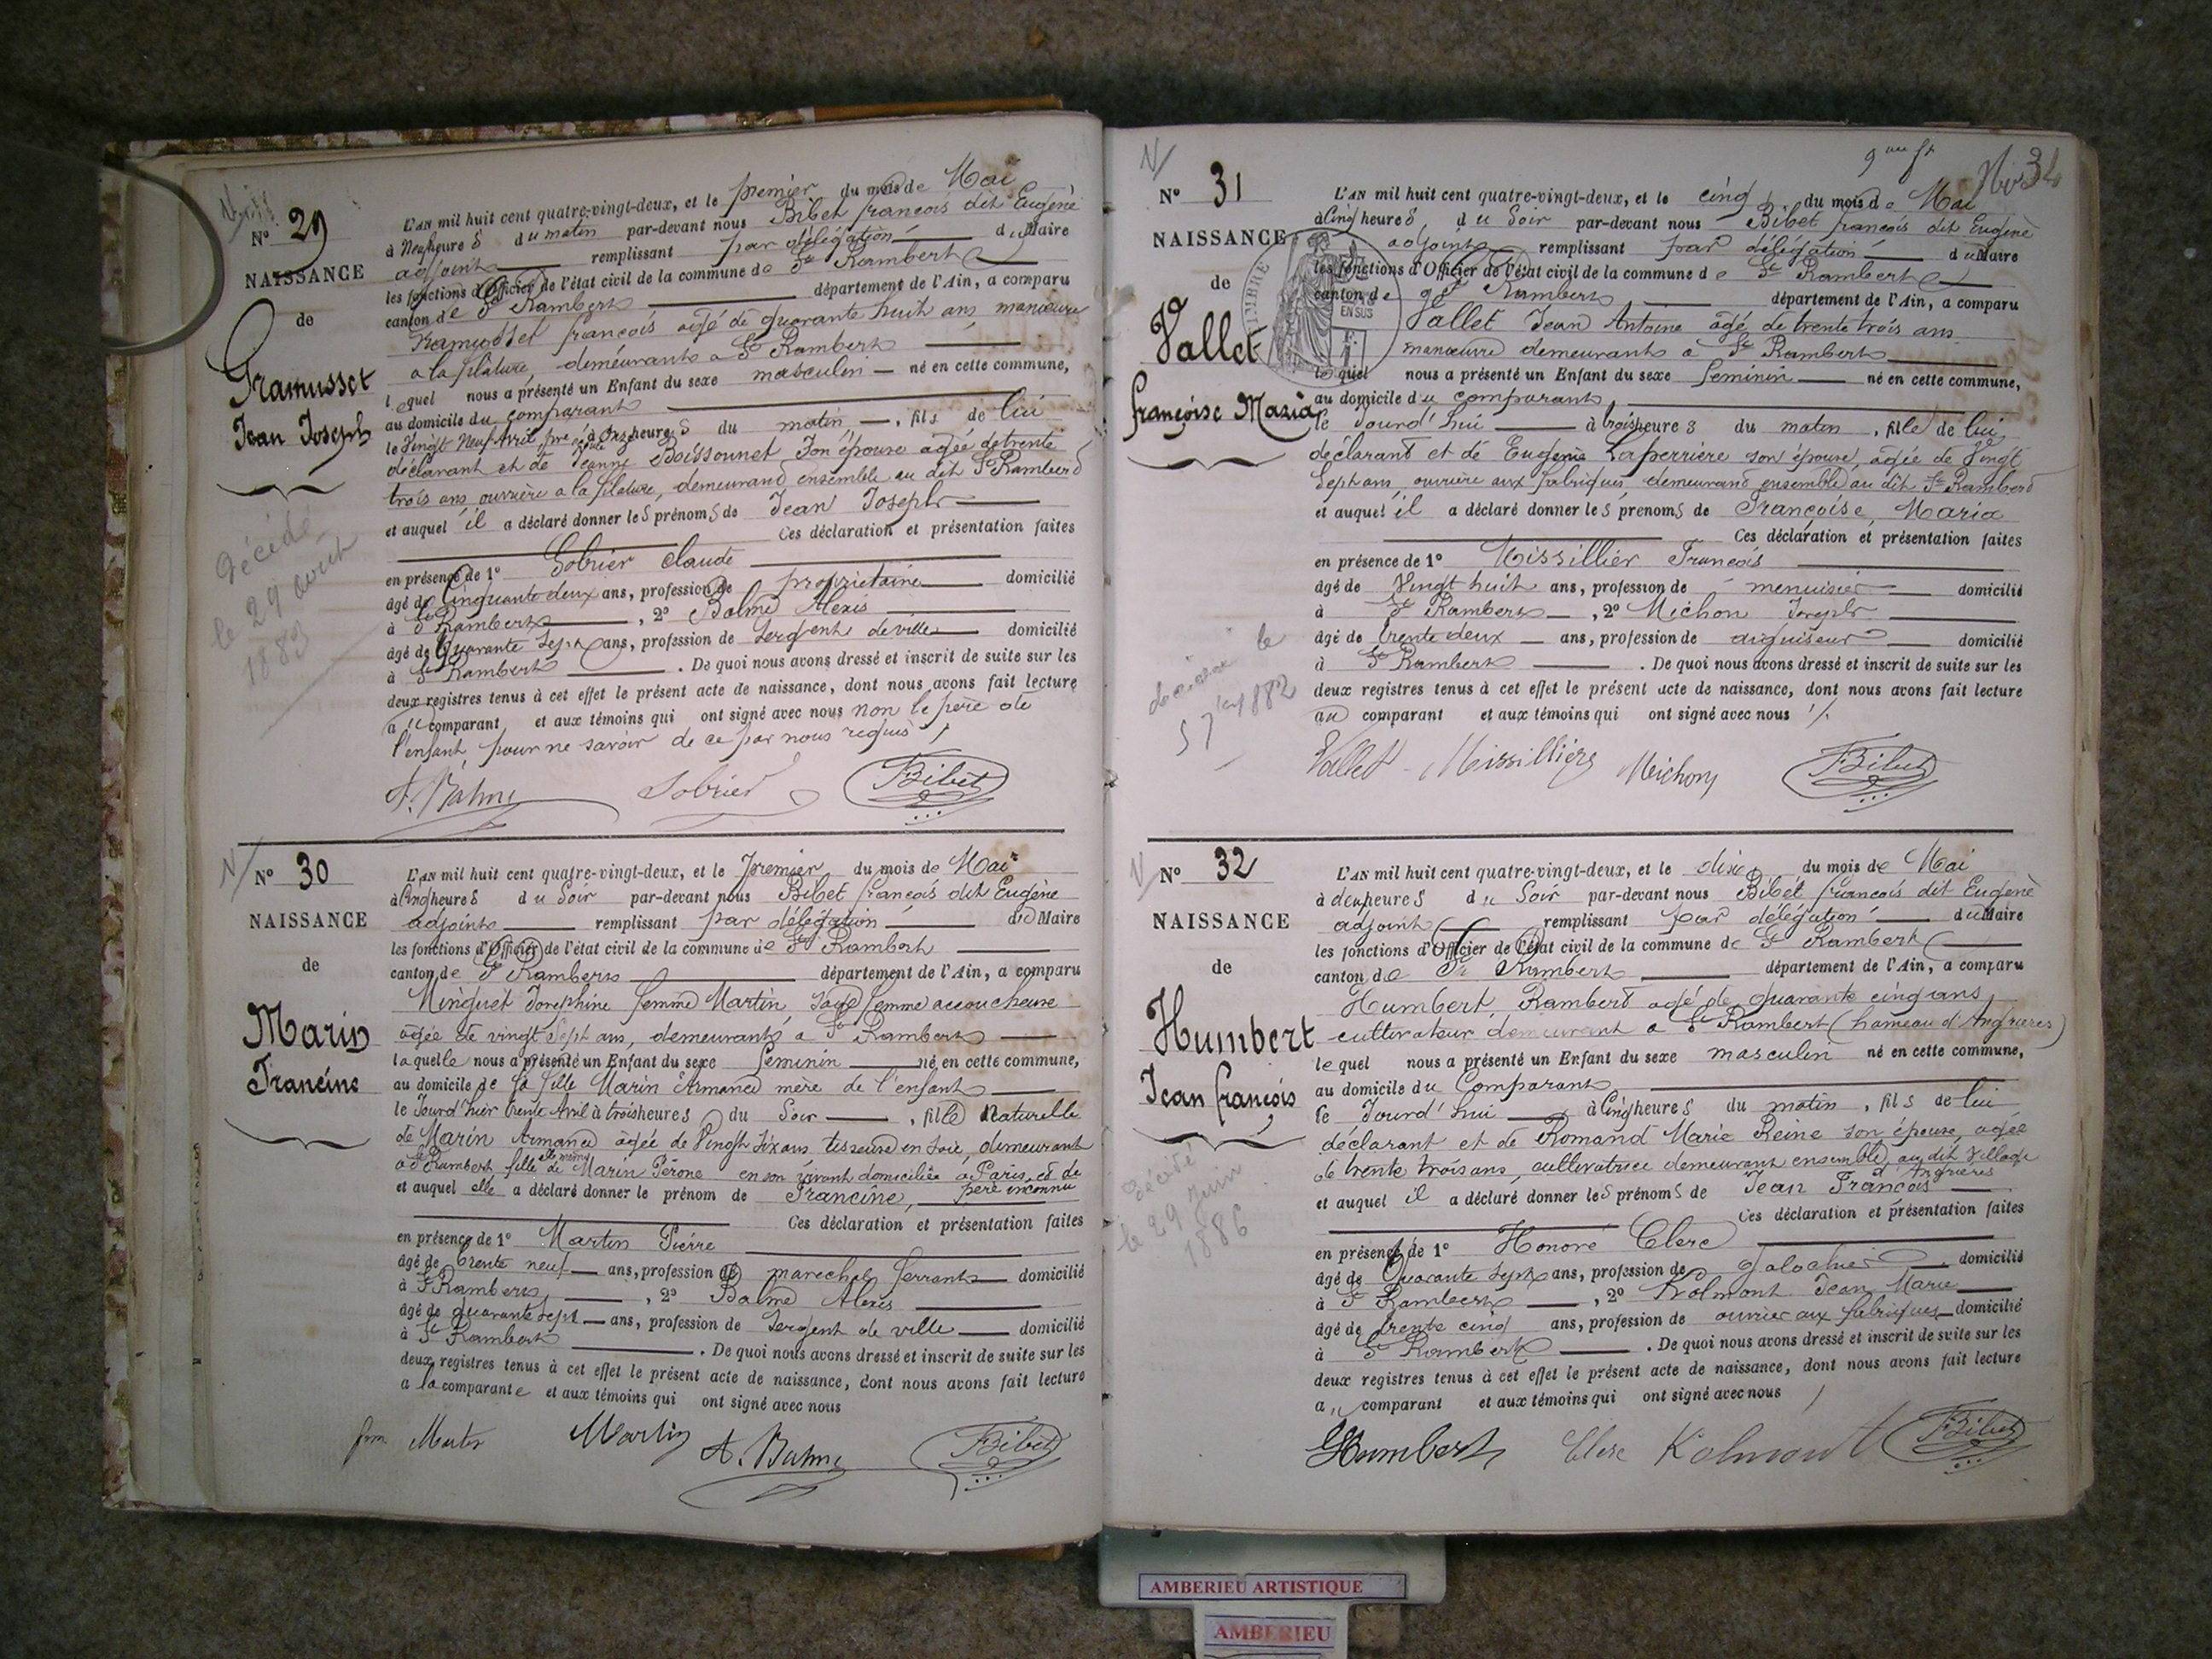 N° 29
NAISSANCE
de
Gramusset
Jean Joseph
Décédé
le 29 août
1883
L'AN mil huit cent quatre-vingt-deux, et le premier du mois de Mai
à Neuf heures du matin par-devant nous Bibet françois dit Eugène
adjoint remplissant par délégation du Maire
les fonctions d'Officier de l'état civil de la commune de St Rambert
canton de St Rambert département de l'Ain, a comparu
Gramusset françois agé de quarante huit ans manœuvre
a la filature, demeurant a St Rambert
lequel nous a présenté un Enfant du sexe masculin né en cette commune,
au domicile du comparant
le Vingt Neuf Avril à onze heures du matin, fils de lui
déclarant et de Jeanne Boissonnet son épouse agée de trente
trois ans ouvrière a la filature, demeurand ensemble au dit St Rambert
et auquel il a déclaré donner les prénoms de Jean Joseph
Ces déclaration et présentation faites
en présence de 1° Sobrier Claude
âgé de Cinquante deux ans, profession de propriétaire domicilié
à St Rambert, 2° Balme Alexis
âgé de quarante sept ans, profession de Sergent de ville domicilié
à St Rambert. De quoi nous avons dressé et inscrit de suite sur les
deux registres tenus à cet effet le présent acte de naissance, dont nous avons fait lecture
au comparant et aux témoins qui ont signé avec nous non le père de
l'enfant, pour ne savoir de ce par nous requis
A. Balme Sobrier FBibet
N° 30
NAISSANCE
de
Marin
Francine
L'AN mil huit cent quatre-vingt-deux, et le premier du mois de Mai
à Cinq heures du Soir par-devant nous Bibet françois dit Eugène
adjoint remplissant par délégation du Maire
les fonctions d'Officier de l'état civil de la commune de St Rambert
canton de St Rambert département de l'Ain, a comparu
Minguet Josephine femme Martin, sage femme accoucheuse
agée de vingt Sept ans, demeurant a St Rambert
laquelle nous a présenté un Enfant du sexe feminin né en cette commune,
au domicile de la fille Marin Armance mère de l'enfant
le Jourd'hier trente Avril à trois heures du Soir, fille Naturelle
de Marin Armance agée de Vingt Six ans tisseuse en soie, demeurant
a St Rambert, fille elle même de Marin Pérone en son vivant domiciliée à Paris, et de
père inconnu
et auquel elle a déclaré donner le prénom de Francine,
Ces déclaration et présentation faites
en présence de 1° Martin Pierre
âgé de trente neuf ans, profession de marechal ferrant domicilié
à St Rambert, 2° Balme Alexis
âgé de quarante sept ans, profession de Sergent de ville domicilié
à St Rambert. De quoi nous avons dressé et inscrit de suite sur les
deux registres tenus à cet effet le présent acte de naissance, dont nous avons fait lecture
a la comparante et aux témoins qui ont signé avec nous
fem Martin Martin A. Balme FBibet
N° 31
NAISSANCE
de
Vallet
françoise Maria
L'AN mil huit cent quatre-vingt-deux, et le cinq du mois de Mai
à Cinq heures du Soir par-devant nous Bibet françois dit Eugène
adjoint remplissant par délégation du Maire
les fonctions d'Officier de l'état civil de la commune de St Rambert
canton de St Rambert département de l'Ain, a comparu
Vallet Jean Antoine âgé de trente trois ans
manœuvre demeurant a St Rambert
lequel nous a présenté un Enfant du sexe feminin né en cette commune,
au domicile du comparant,
le Jourd'hui à trois heures du matin, fille de lui
déclarant et de Eugénie Laperrière son épouse, agée de Vingt
Sept ans, ouvrière aux fabriques, demeurand ensemble au dit St Rambert
et auquel il a déclaré donner les prénoms de Françoise, Maria
Ces déclaration et présentation faites
en présence de 1° Missillier François
âgé de Vingt huit ans, profession de menuisier domicilié
à St Rambert, 2° Michon Joseph
âgé de trente deux ans, profession de aiguiseur domicilié
à St Rambert. De quoi nous avons dressé et inscrit de suite sur les
deux registres tenus à cet effet le présent acte de naissance, dont nous avons fait lecture
au comparant et aux témoins qui ont signé avec nous
Vallet Missillier Michon FBibet
N° 32
NAISSANCE
de
Humbert
Jean françois
Décédé
le 29 Juin
1886
L'AN mil huit cent quatre-vingt-deux, et le dix du mois de Mai
à deux heures du Soir par-devant nous Bibet françois dit Eugène
adjoint remplissant par délégation du Maire
les fonctions d'Officier de l'état civil de la commune de St Rambert
canton de St Rambert département de l'Ain, a comparu
Humbert, Rambert agé de quarante cinq ans,
cultivateur demeurant a St Rambert (hameau d'Angrières)
lequel nous a présenté un Enfant du sexe masculin né en cette commune,
au domicile du Comparant
le Jourd'hui à Cinq heures du matin, fils de lui
déclarant et de Romand Marie Reine son épouse, agée
de trente trois ans, cultivatrice demeurant ensemble, au dit Village
d'Angrières
et auquel il a déclaré donner les prénoms de Jean François
Ces déclaration et présentation faites
en présence de 1° Honoré Clerc
âgé de Quarante sept ans, profession de galochier domicilié
à St Rambert, 2° Kolmont Jean Marie
âgé de trente cinq ans, profession de ouvrier aux fabriques domicilié
à St Rambert. De quoi nous avons dressé et inscrit de suite sur les
deux registres tenus à cet effet le présent acte de naissance, dont nous avons fait lecture
au comparant et aux témoins qui ont signé avec nous
Humbert Clerc Kolmont FBibet
AMBERIEU ARTISTIQUE
AMBERIEU